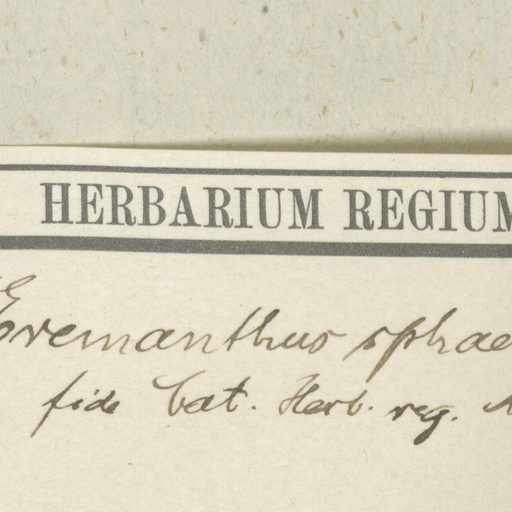 HERBARIUM REGIUM
Eremanthus sphae
fide Cat. Herb. reg.